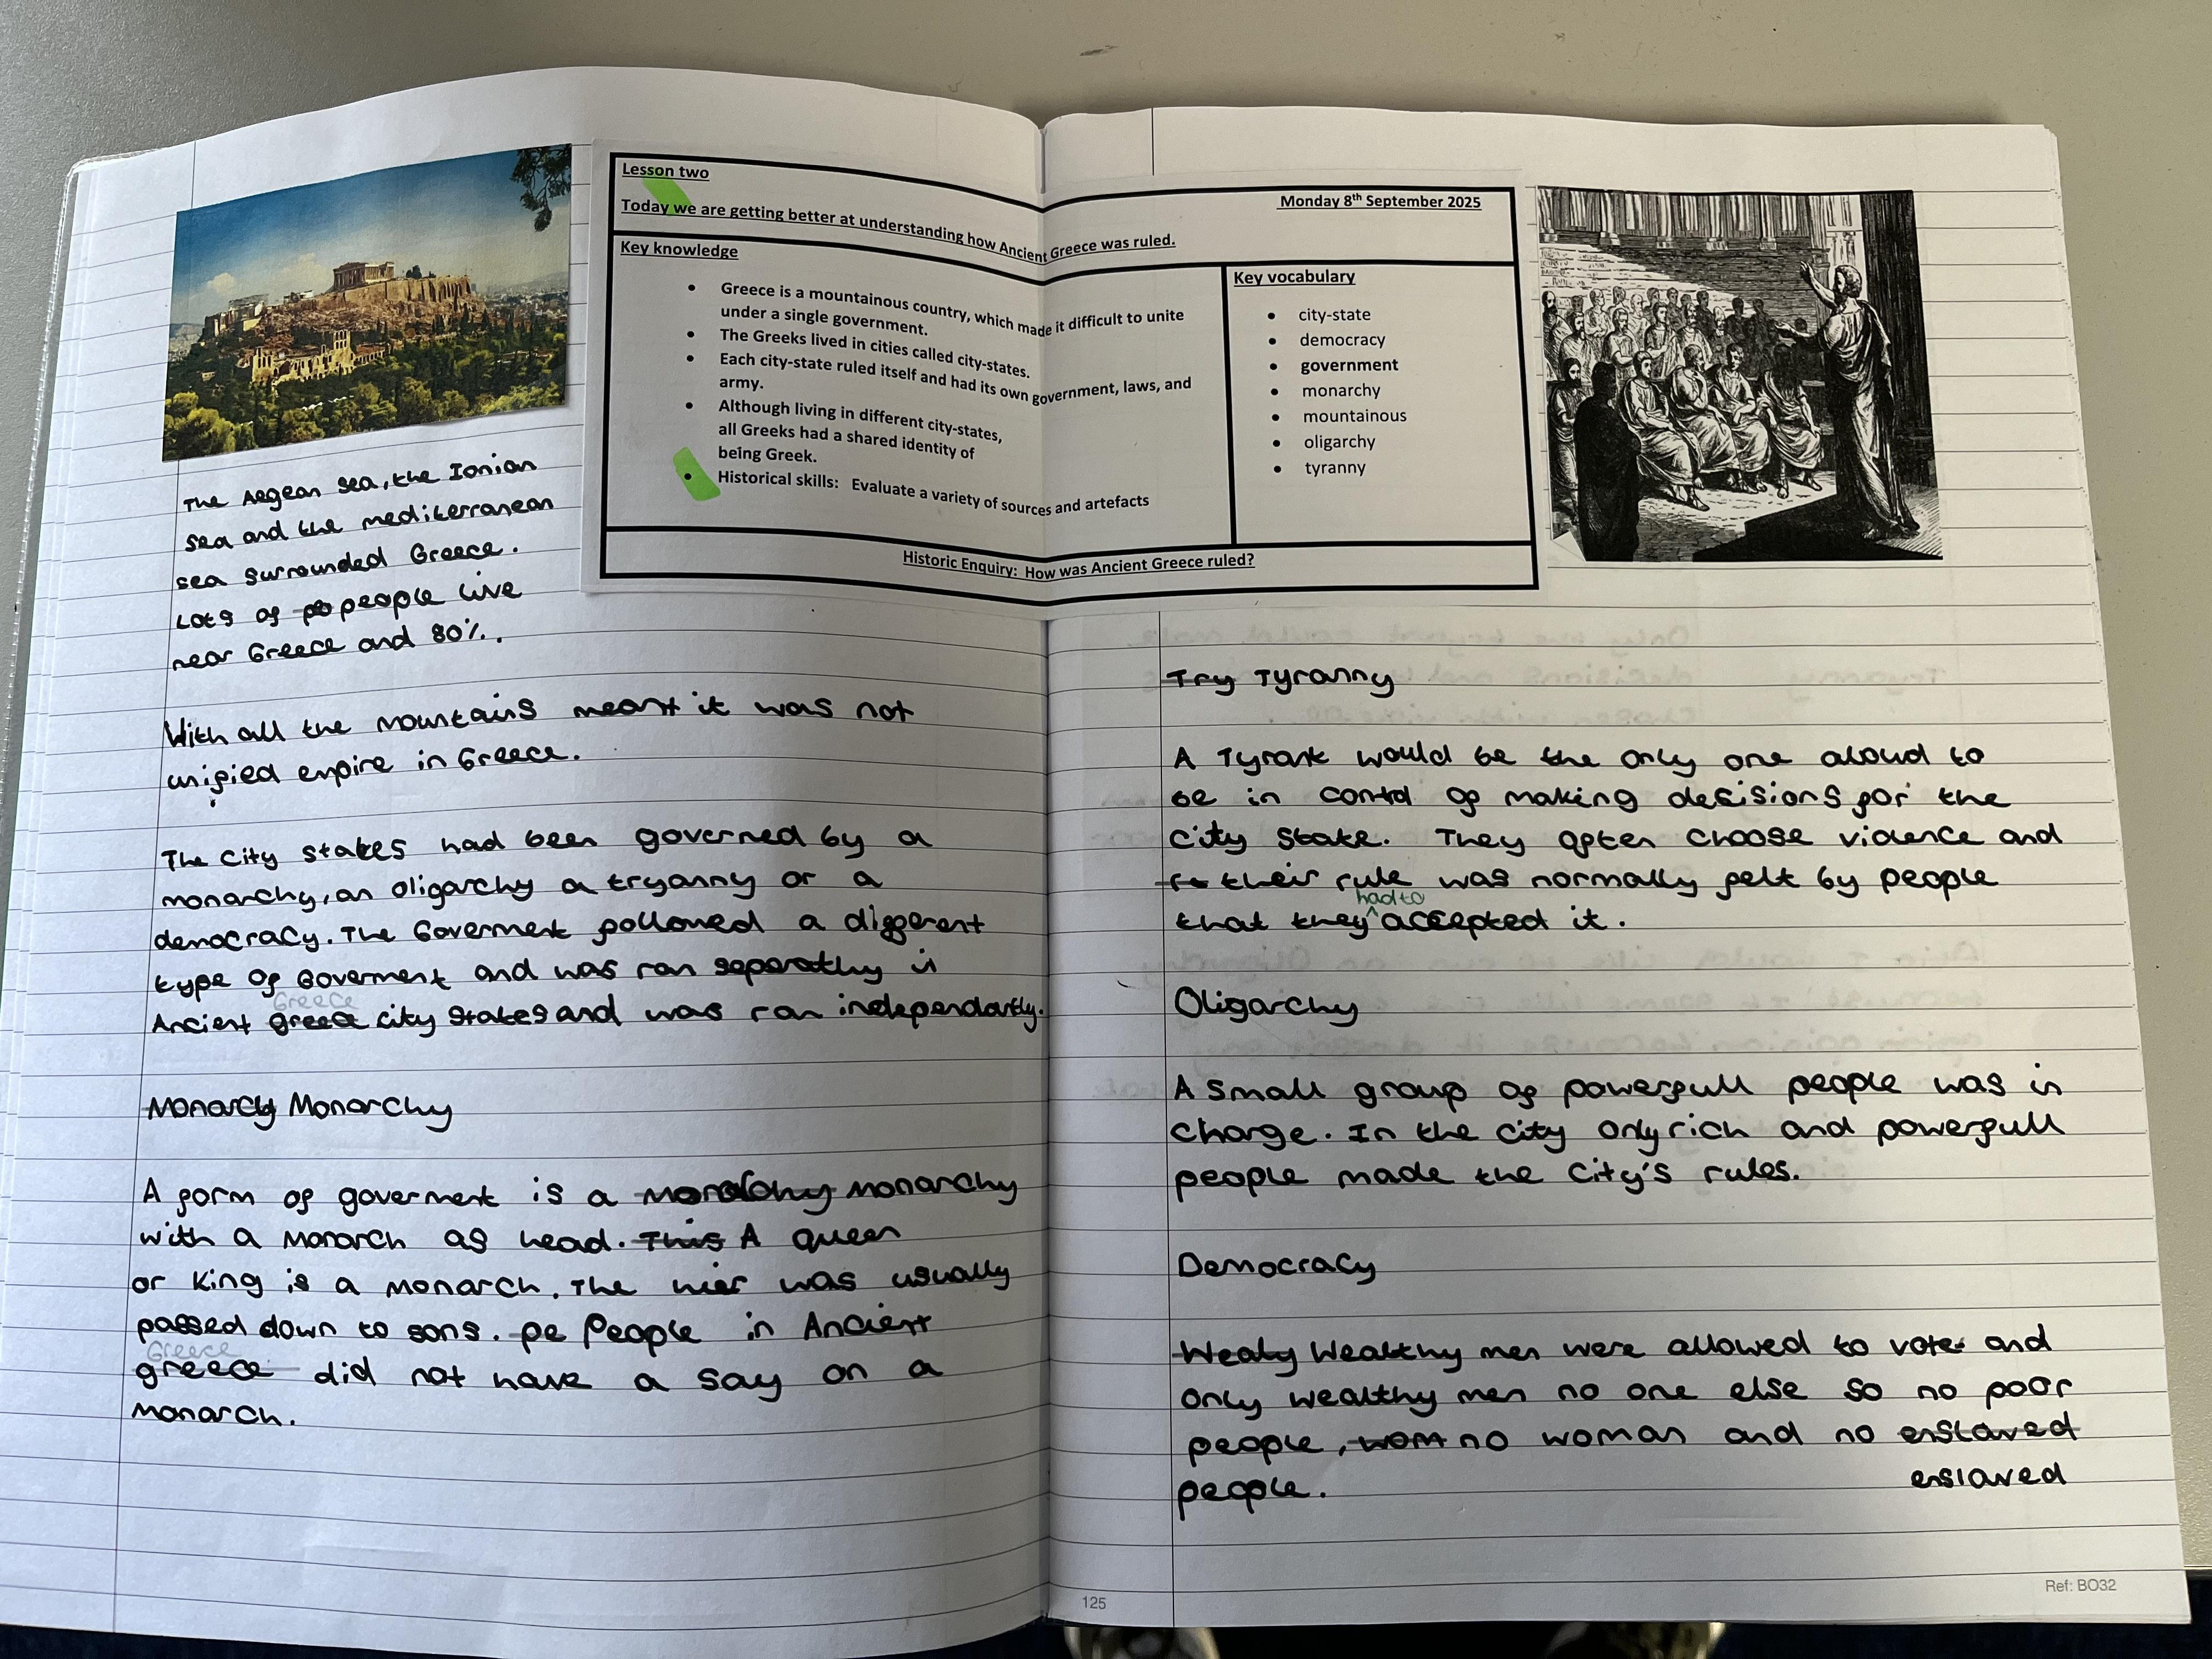 Lesson two
Monday 8th September 2025
Today we are getting better at understanding how Ancient Greece was ruled.
Key knowledge
• Greece is a mountainous country, which made it difficult to unite
under a single government.
• The Greeks lived in cities called city-states.
• Each city-state ruled itself and had its own government, laws, and
army.
• Although living in different city-states,
all Greeks had a shared identity of
being Greek.
• Historical skills: Evaluate a variety of sources and artefacts
Key vocabulary
• city-state
• democracy
• government
• monarchy
• mountainous
• oligarchy
• tyranny
Historic Enquiry: How was Ancient Greece ruled?
The Aegean sea, the Ionian
sea and the mediterranean
sea surrounded Greece.
Lots of po people live
near Greece and 80%.
With all the mountains meant it was not
unified empire in Greece.
The City states had been governed by a
monarchy, an oligarchy a tryanny or a
democracy. The Goverment followed a different
type of Goverment and was ran separathy in
Greece
Ancient greece city states and was ran independantly.
Monarcy Monarchy
A form of goverment is a monarchy
with a monarch as head. This A queen
or King is a monarch. The was usually
passed down to sons. pe People in Ancient
Greece
greece did not have a say on a
monarch.
Try Tyranny
A Tyrant would be the only one aloud to
be in control of making decisions for the
City State. They often choose violence and
their rule was normally felt by people
had to
that they ^ accepted it.
Oligarchy
A small group of powerfull people was in
charge. In the city only rich and powerfull
people made the City's rules.
Democracy
Wealy Wealthy men were allowed to vote and
only wealthy men no one else so no poor
people, wom no woman and no enslaved
enslaved
people.
125
Ref: BO32